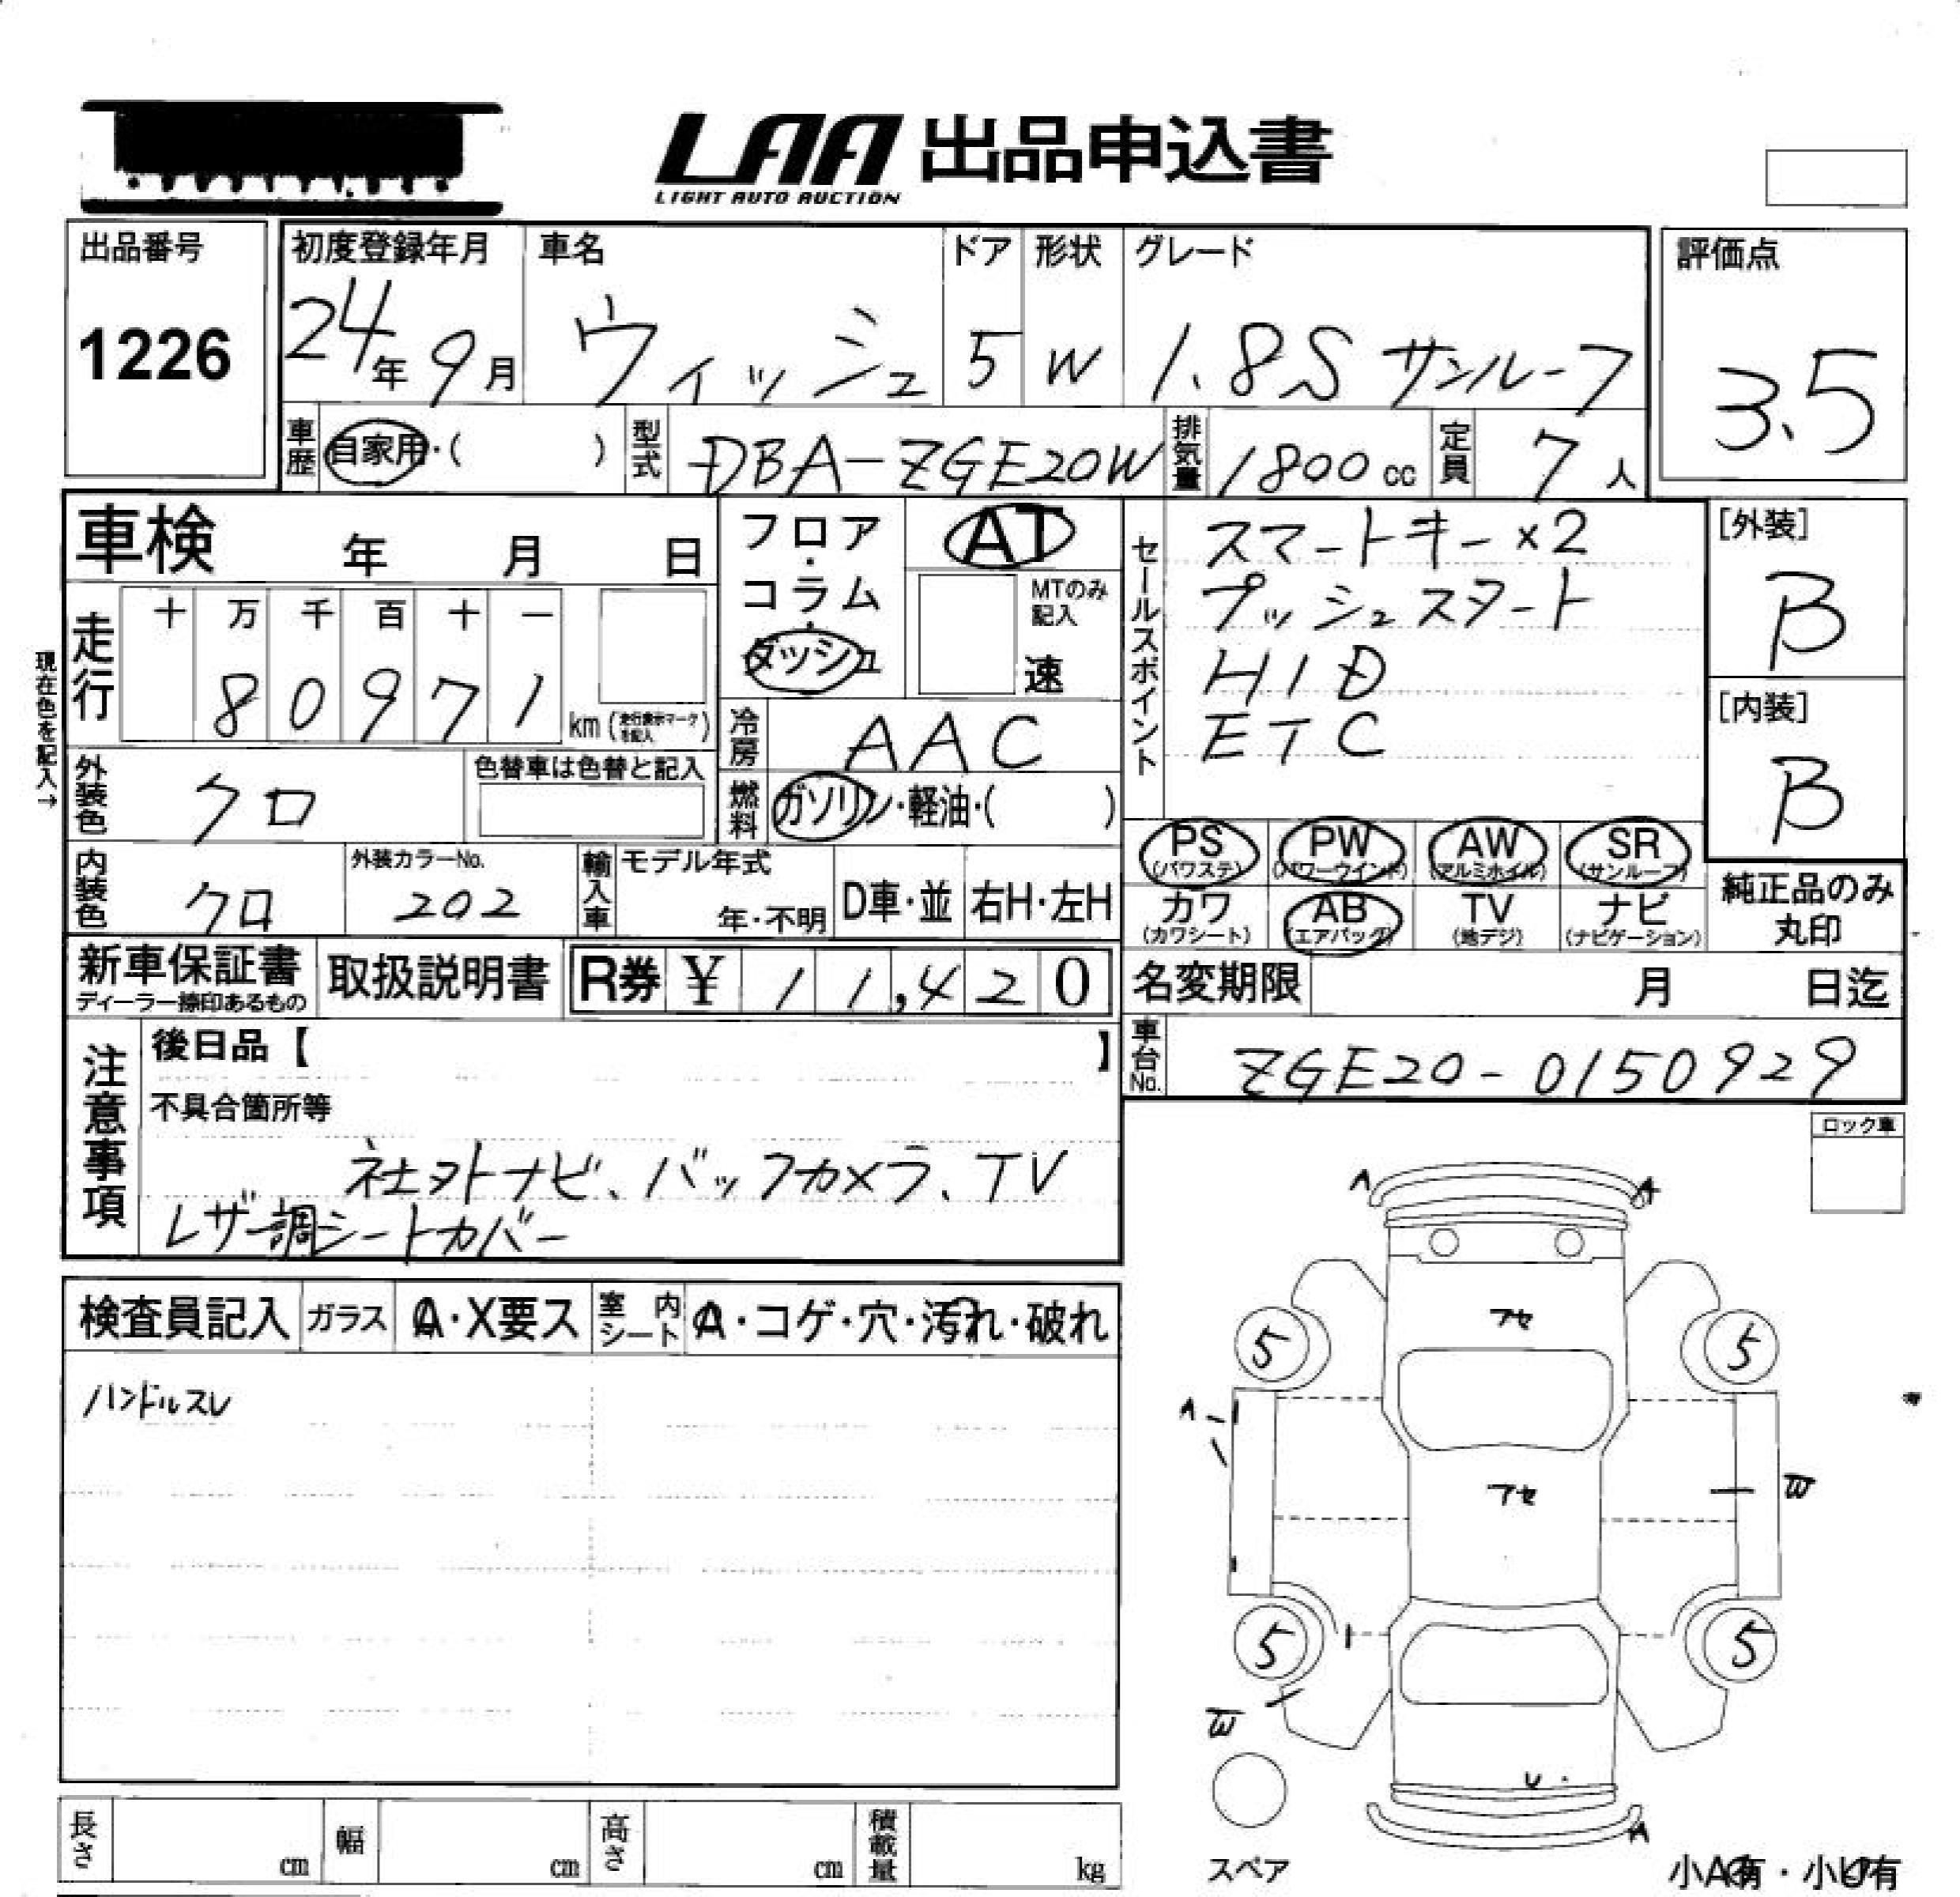 LAA 出品申込書
LIGHT AUTO AUCTION
出品番号
1226
初度登録年月
24年9月
車名
ウィッシュ
ドア
5
形状
W
グレード
1.8S サンルーフ
評価点
3.5
車歴
自家用・( )
型式
DBA-ZGE20W
排気量
1800cc
定員
7人
車検 年 月 日
フロア・コラム・ダッシュ
AT
MTのみ記入
速
セールスポイント
スマートキー×2
プッシュスタート
HID
ETC
[外装]
B
[内装]
B
現在色を記入→
走行
十万千百十一
80971
km(走行表示マークを記入)
冷房
AAC
燃料
ガソリン・軽油・( )
外装色
クロ
色替車は色替と記入
内装色
クロ
外装カラーNo.
202
輸入車
モデル年式
年・不明
D車・並
右H・左H
PS
(パワステ)
PW
(パワーウインド)
AW
(アルミホイル)
SR
(サンルーフ)
カワ
(カワシート)
AB
(エアバック)
TV
(地デジ)
ナビ
(ナビゲーション)
純正品のみ
丸印
新車保証書
ディーラー捺印あるもの
取扱説明書
R券 ¥ 11,420
名変期限 月 日迄
車台No.
ZGE20-0150929
注意事項
後日品【 】
不具合箇所等
社外ナビ、バックカメラ、TV
レザー調シートカバー
ロック車
検査員記入
ガラス
A・X要ス
室内シート
A・コゲ・穴・汚れ・破れ
ハンドルスレ
A
A
アセ
5
5
A
アセ
W
5
5
W
U
A
スペア
長さ cm
幅 cm
高さ cm
積載量 kg
小A有・小U有